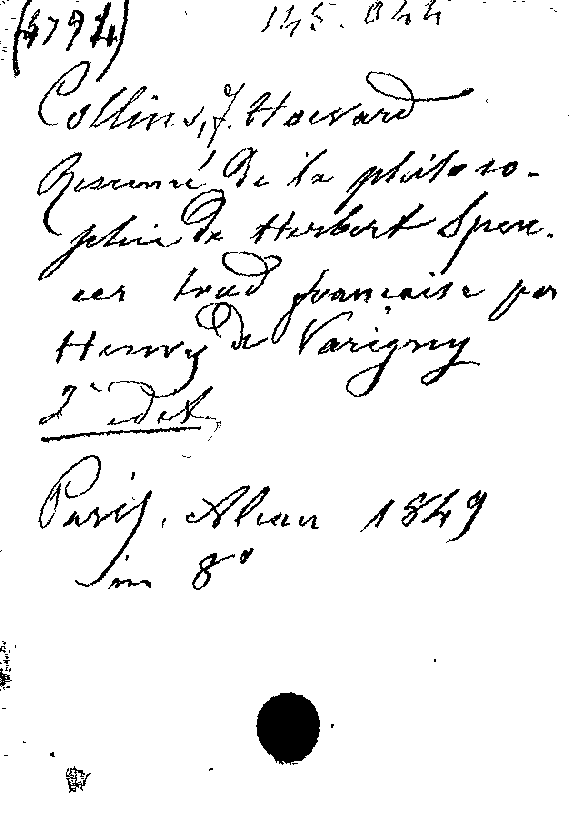 (4794) 145.044
Collins, F. Howard
Resumé de la philoso-
phie de Herbert Spen.
cer trad française par
Henry de Varigny
2e edit,
Paris, Alcan 1849
in 8°